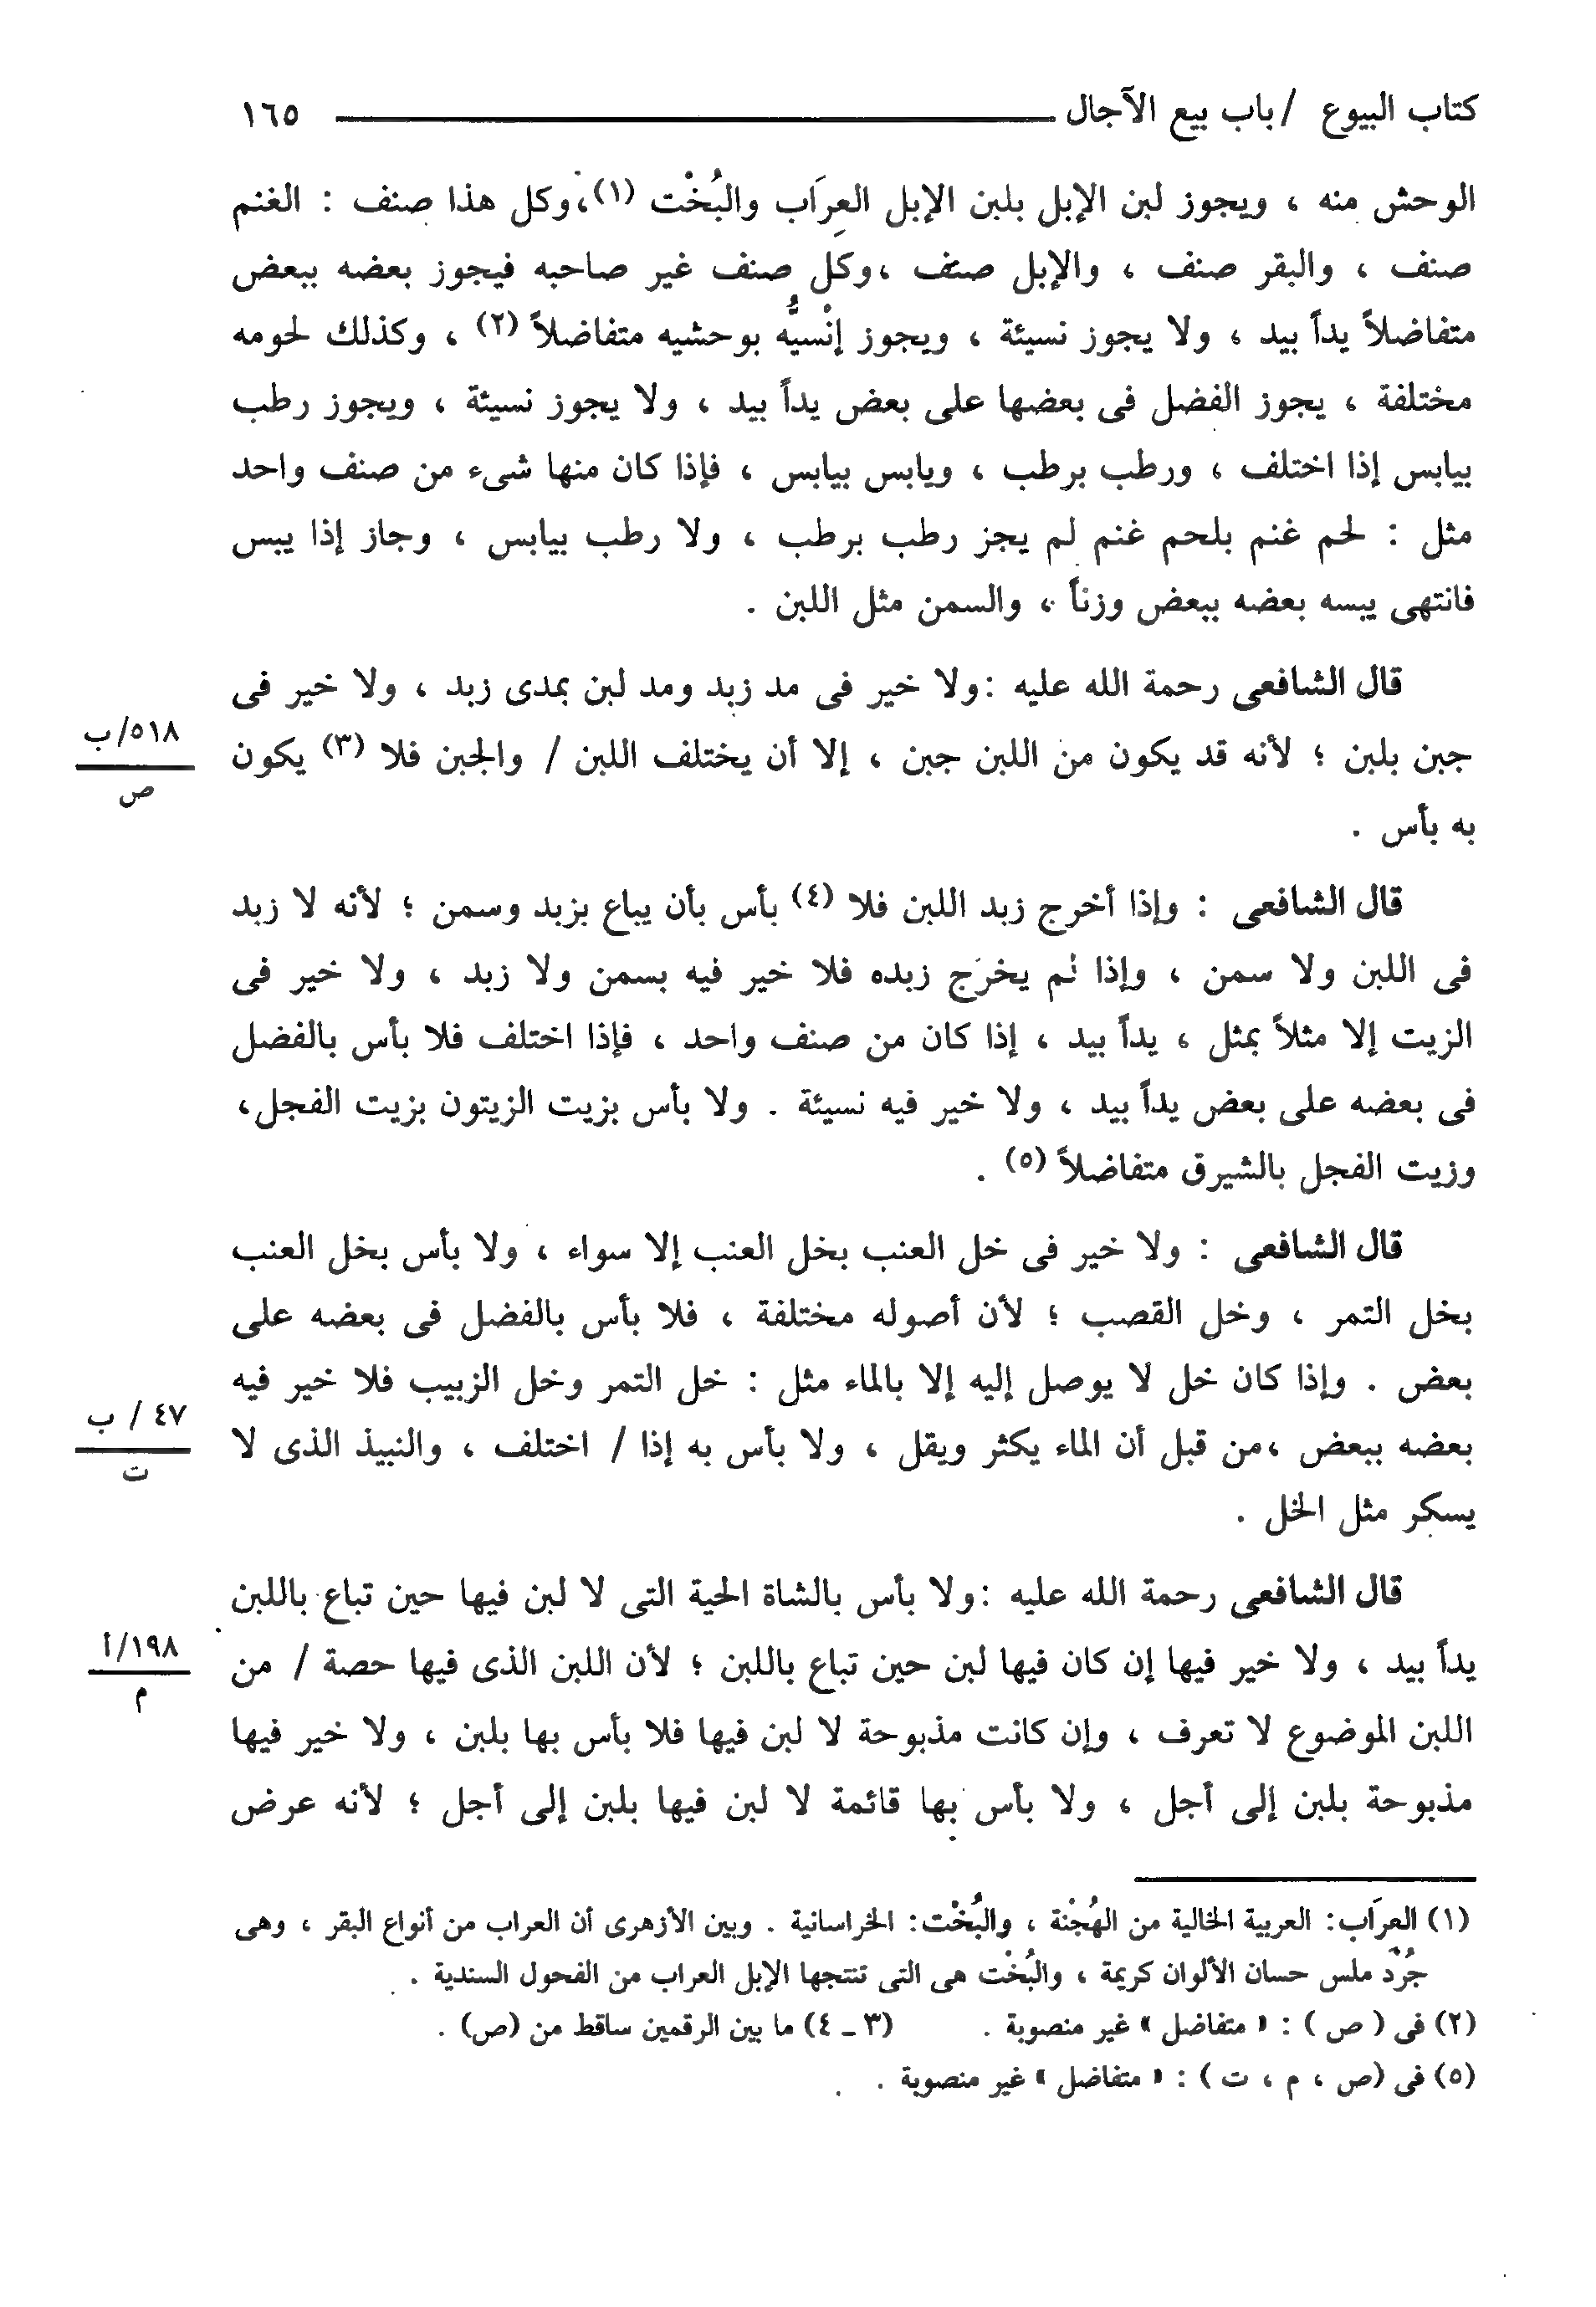 كتاب البيوع / باب بيع الآجال ١٦٥
الوحش منه ، ويجوز لبن الإبل بلبن الإبل العِرَاب والبُخْت (١)،وكل هذا صنف : الغنم
صنف ، والبقر صنف ، والإبل صنف ،وكل صنف غير صاحبه فيجوز بعضه ببعض
متفاضلاً يداً بيد ، ولا يجوز نسيئة ، ويجوز إنْسيُّه بوحشيه متفاضلاً (٢) ، وكذلك لحومه
مختلفة ، يجوز الفضل فى بعضها على بعض يداً بيد ، ولا يجوز نسيئة ، ويجوز رطب
بيابس إذا اختلف ، ورطب برطب ، ويابس بيابس ، فإذا كان منها شىء من صنف واحد
مثل : لحم غنم بلحم غنم لم يجز رطب برطب ، ولا رطب بيابس ، وجاز إذا يبس
فانتهى يبسه بعضه ببعض وزناً ، والسمن مثل اللبن .
قال الشافعى رحمة الله عليه :ولا خير فى مد زبد ومد لبن بمدى زبد ، ولا خير فى
جبن بلبن ؛ لأنه قد يكون من اللبن جبن ، إلا أن يختلف اللبن / والجبن فلا (٣) يكون
٥١٨/ب
ص
به بأس .
قال الشافعى : وإذا أخرج زبد اللبن فلا (٤) بأس بأن يباع بزبد وسمن ؛ لأنه لا زبد
فى اللبن ولا سمن ، وإذا لم يخرج زبده فلا خير فيه بسمن ولا زبد ، ولا خير فى
الزيت إلا مثلاً بمثل ، يداً بيد ، إذا كان من صنف واحد ، فإذا اختلف فلا بأس بالفضل
فى بعضه على بعض يداً بيد ، ولا خير فيه نسيئة . ولا بأس بزيت الزيتون بزيت الفجل،
وزيت الفجل بالشيرق متفاضلاً (٥) .
قال الشافعى : ولا خير فى خل العنب بخل العنب إلا سواء ، ولا بأس بخل العنب
بخل التمر ، وخل القصب ؛ لأن أصوله مختلفة ، فلا بأس بالفضل فى بعضه على
بعض . وإذا كان خل لا يوصل إليه إلا بالماء مثل : خل التمر وخل الزبيب فلا خير فيه
بعضه ببعض ،من قبل أن الماء يكثر ويقل ، ولا بأس به إذا / اختلف ، والنبيذ الذى لا
٤٧ / ب
ت
يسكر مثل الخل .
قال الشافعى رحمة الله عليه :ولا بأس بالشاة الحية التى لا لبن فيها حين تباع باللبن
يداً بيد ، ولا خير فيها إن كان فيها لبن حين تباع باللبن ؛ لأن اللبن الذى فيها حصة / من
١٩٨/أ
م
اللبن الموضوع لا تعرف ، وإن كانت مذبوحة لا لبن فيها فلا بأس بها بلبن ، ولا خير فيها
مذبوحة بلبن إلى أجل ، ولا بأس بها قائمة لا لبن فيها بلبن إلى أجل ؛ لأنه عرض
(١) العِرَاب: العربية الخالية من الهُجْنة ، والبُخْت: الخراسانية . وبين الأزهرى أن العراب من أنواع البقر ، وهى
جُرْد ملس حسان الألوان كريمة ، والبُخْت هى التى تنتجها الإبل العراب من الفحول السندية .
(٢) فى ( ص ) : « متفاضل » غير منصوبة . (٣ ـ ٤) ما بين الرقمين ساقط من (ص) .
(٥) فى (ص ، م ، ت ) : « متفاضل » غير منصوبة .